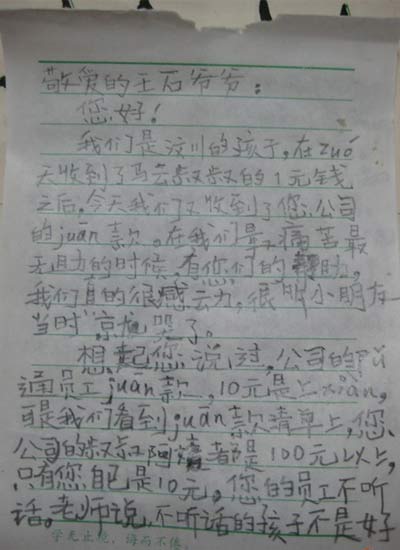 敬爱的王石爷爷：
您好！
我们是汶川的孩子，在zuó
天收到了马云叔叔的1元钱
之后。今天我们又收到了您公司
的juān款。在我们最痛苦最
无助的时候，有您们的帮助，
我们真的很感动，很多小朋友
当时就哭了。
想起您说过，公司的pǔ
通员工juān款，10元是上xiàn，
可是我们看到juān款清单上，您
公司的叔叔阿姨都是100元以上，
只有您自己是10元。您的员工不听
话。老师说，不听话的孩子不是好
学无止境，诲而不倦。